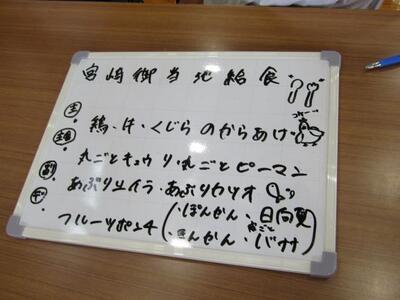 宮崎御当地給食
主
主菜 鶏・牛・くじらのからあげ
副 丸ごとキュウリ・丸ごとピーマン
あぶりエイラ・あぶりカツオ
デ フルーツポンチ(・ぽんかん・日向夏
・きんかん・丸ごとバナナ)